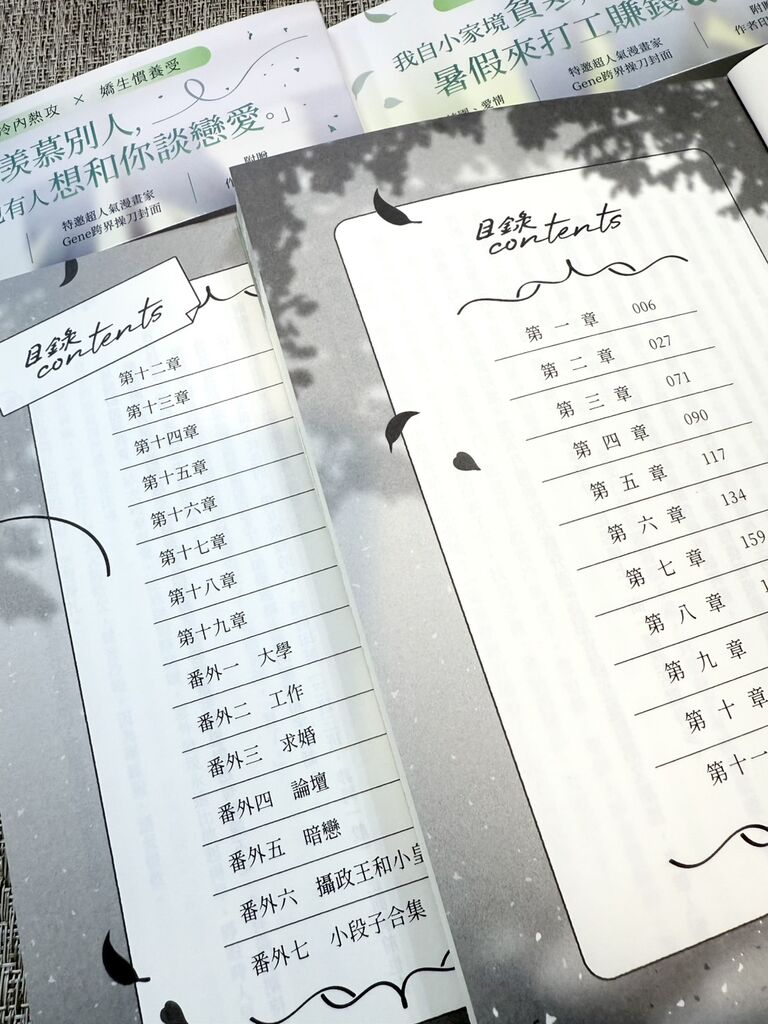 冷內熱攻 × 嬌生慣養受
羨慕別人,
有人想和你談戀愛。」
特邀超人氣漫畫家
Gene跨界操刀封面
附贈
我自小家境貧
暑假來打工賺錢
特邀超人氣漫畫家
Gene跨界操刀封面
附贈
作者印
愛情
目錄
contents
第十二章
第十三章
第十四章
第十五章
第十六章
第十七章
第十八章
第十九章
番外一 大學
番外二 工作
番外三 求婚
番外四 論壇
番外五 暗戀
番外六 攝政王和小皇
番外七 小段子合集
目錄
contents
第一章 006
第二章 027
第三章 071
第四章 090
第五章 117
第六章 134
第七章 159
第八章 1
第九章
第十章
第十一